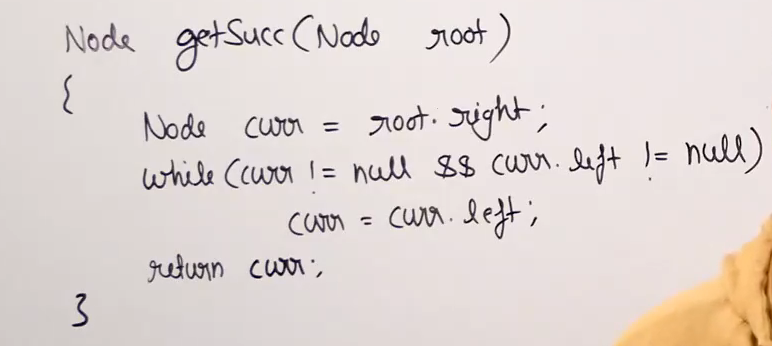 Node getSucc(Node root)
{
Node curr = root.right;
while(curr != null && curr.left != null)
curr = curr.left;
return curr;
}